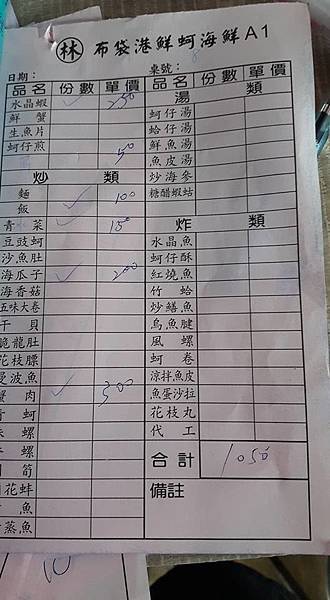 林 布袋港鮮蚵海鮮A1
日期： 桌號：
品名 份數 單價
水晶蝦 ✓ 250
鮮蟹
生魚片
蚵仔煎 50
炒類
麵 ✓ 100
飯
青菜 ✓ 150
豆豉蚵
沙魚肚
海瓜子 ✓ 200
海香菇
五味大卷
干貝
脆龍肚
花枝膘
曼波魚
蟹肉 ✓ 300
蚵
螺
螺
筍
花蚌
魚
蒸魚
品名 份數 單價
湯類
蚵仔湯
蛤仔湯
鮮魚湯
魚皮湯
炒海參
糖醋蝦蛄
炸類
水晶魚
蚵仔酥
紅燒魚
竹蛤
炒鱔魚
烏魚腱
風螺
蚵卷
涼拌魚皮
魚蛋沙拉
花枝丸
代工
合計 1050
備註